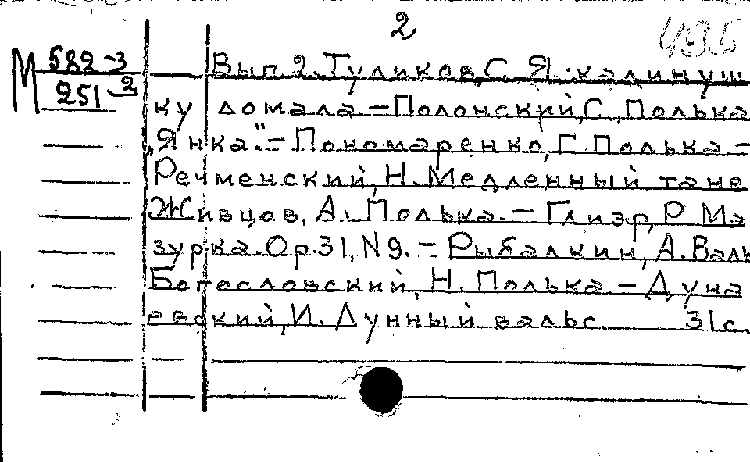 2
М 582-3
251-2
Вып 2. Туликов, С. Я калинуш
ку домала – Полонский, С. Полька
„Янка". – Пономаренко, Г. Полька –
Речменский, Н. Медленный тане
Живцов, А. Полька. – Глиэр, Р. Ма
зурка. Ор. 31, N 9. – Рыбалкин, А. Валь
Богословский, Н. Полька – Дуна
евский, И. Лунный вальс. 31с.